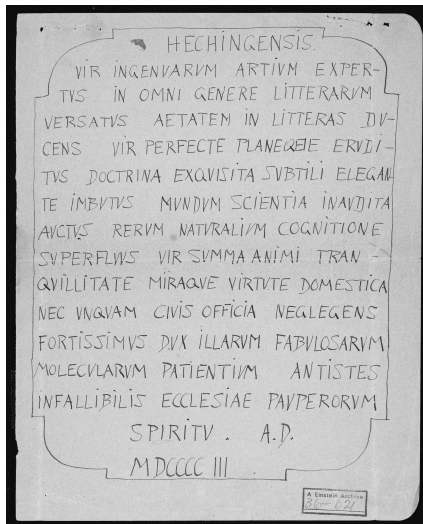 HECHINGENSIS.
VIR INGENUARVM ARTIVM EXPER-
TVS IN OMNI GENERE LITTERARVM
VERSATVS AETATEM IN LITTERAS DU-
CENS VIR PERFECTE PLANEQUE ERVDI-
TVS DOCTRINA EXQVISITA SVBTILI ELEGAN-
TE IMBVTVS MVNDVM SCIENTIA INAVDITA
AVCTVS RERVM NATVRALIVM COGNITIONE
SVPERFLVVS VIR SVMMA ANIMI TRAN-
QVILLITATE MIRAQVE VIRTVTE DOMESTICA
NEC VNQVAM CIVIS OFFICIA NEGLEGENS
FORTISSIMVS DVX ILLARVM FABVLOSARVM
MOLECVLARVM PATIENTIVM ANTISTES
INFALLIBILIS ECCLESIAE PAVPERORVM
SPIRITV. A.D.
MDCCCC III.
A Einstein Archive
36-621